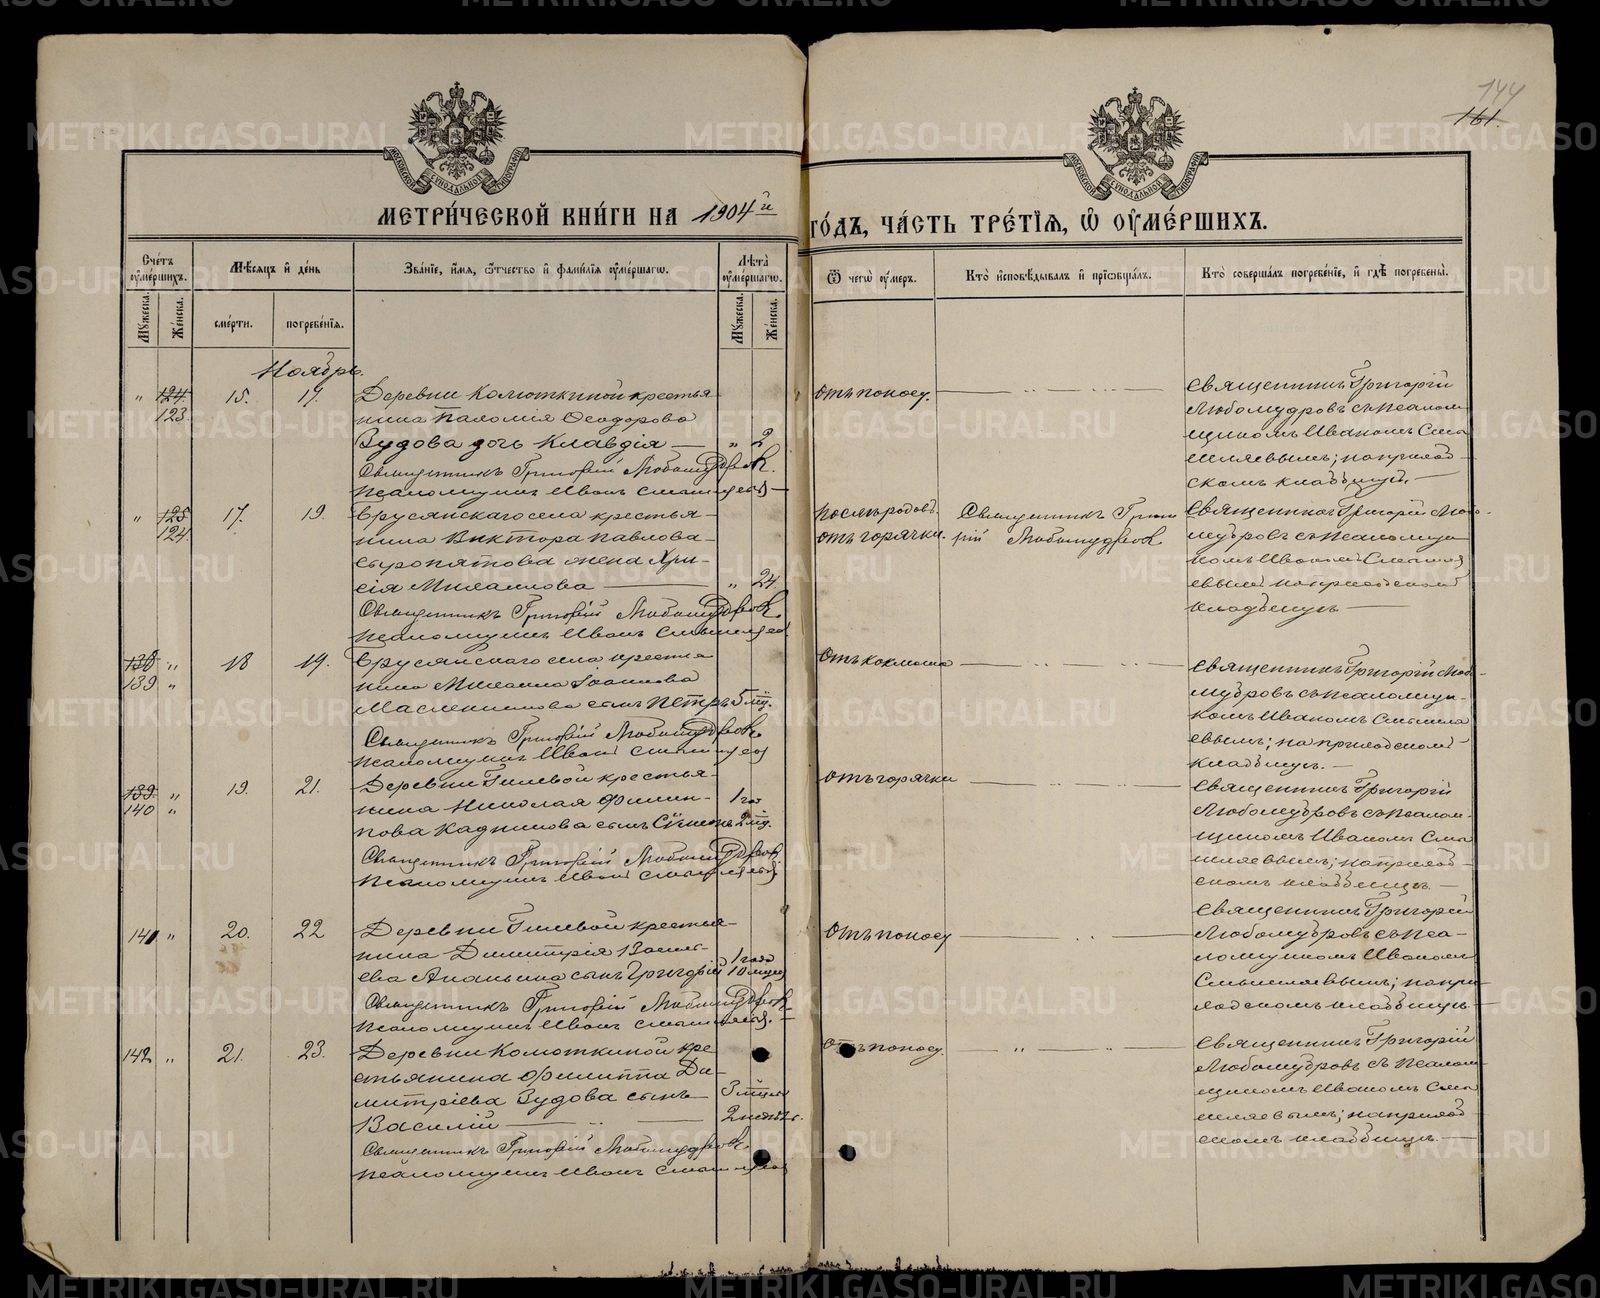 144
161.
МЕТРИ́ЧЕСКОЙ КНИ́ГИ НА 1904й
ГО́ДЪ, ЧА́СТЬ ТРЕ́ТІѦ, Ѡ҆ ОУ҆МЕ́РШИХЪ.
Сче́тъ оу҆ме́ршихъ.
Мѣ́сяцъ и҆ де́нь
Зва́нїе, и҆́мѧ, ѻ҆́тчество и҆ фами́лїѧ оу҆ме́ршагѡ.
Лѣ́та оу҆ме́ршагѡ.
Ѿ чегѡ̀ оу҆́меръ.
Кто̀ и҆сповѣ́дывалъ и҆ прїѡбща́лъ.
Кто̀ соверша́лъ погребе́нїе, и҆ гдѣ̀ погребены̀.
Мꙋ́жеска.
Же́нска.
сме́рти.
погребе́нїѧ.
Мꙋ́жеска.
Же́нска.
Ноябрь.
" 124. 15. 17. Деревни Комоткиной крестья-
123
нина Паломія Ѳеодорова
Зудова дочь Клавдія — " 2
Священникъ Григорій Любомудровъ.
Псаломщикъ Иванъ Смышляевъ —
отъ поносу.
Священникъ Григорій
Любомудровъ съ псалом-
щикомъ Иваномъ Смы
шляевымъ; на приход-
скомъ кладбищѣ. —
" 125 17. 19. Брусянскаго села крестья-
124
нина Виктора Павлова
Сыропятова жена Хри-
сія Михаилова — " 24
Священникъ Григорій Любомудровъ.
Псаломщикъ Иванъ Смышляевъ
послѣ родовъ
отъ горячки.
Священникъ Григо
рій Любомудровъ
Священникъ Григорій Любо-
мудровъ съ псаломщи
комъ Иваномъ Смышля
евымъ на приходскомъ
кладбищѣ —
138 " 18 19. Брусянскаго села крестья
139 "
нина Михаила Іоаннова
Масленникова сынъ Петръ 5 мц.
Священникъ Григорій Любомудровъ
Псаломщикъ Иванъ Смышляевъ
Отъ коклюша
Священникъ Григорій Любо-
мудровъ съ псаломщи-
комъ Иваномъ Смышля
евымъ; на приходскомъ
кладбищѣ. —
139. " 19. 21. Деревни Гилевой крестья-
140 "
нина Николая Филип- 1 год
пова Кадникова сынъ Сѵмеонъ 2 мц.
Священникъ Григорій Любомудровъ
Псаломщикъ Иванъ Смышляевъ
Отъ горячки
Священникъ Григорій
Любомудровъ съ псалом-
щикомъ Иваномъ Смы
шляевымъ; на приход-
скомъ кладбищѣ. —
141 " 20. 22 Деревни Гилевой крестья-
нина Димитрія Василь- 1 года
ева Ананьина сынъ Григорій 10 мцевъ
Священникъ Григорій Любомудровъ
Псаломщикъ Иванъ Смышляевъ. —
Отъ поносу
Священникъ Григорій
Любомудровъ съ пса-
ломщикомъ Иваномъ
Смышляевымъ; на при
ходскомъ кладбищѣ —
142 " 21. 23. Деревни Комоткиной кре
стьянина Филиппа Ди-
митріева Зудова сынъ 3 мцевъ
Василій —
Священникъ Григорій Любомудровъ.
Псаломщикъ Иванъ Смышляевъ
Отъ поносу.
Священникъ Григорій
Любомудровъ съ псалом
щикомъ Иваномъ Смы
шляевымъ; на приход-
скомъ кладбищѣ. —
METRIKI.GASO-URAL.RU